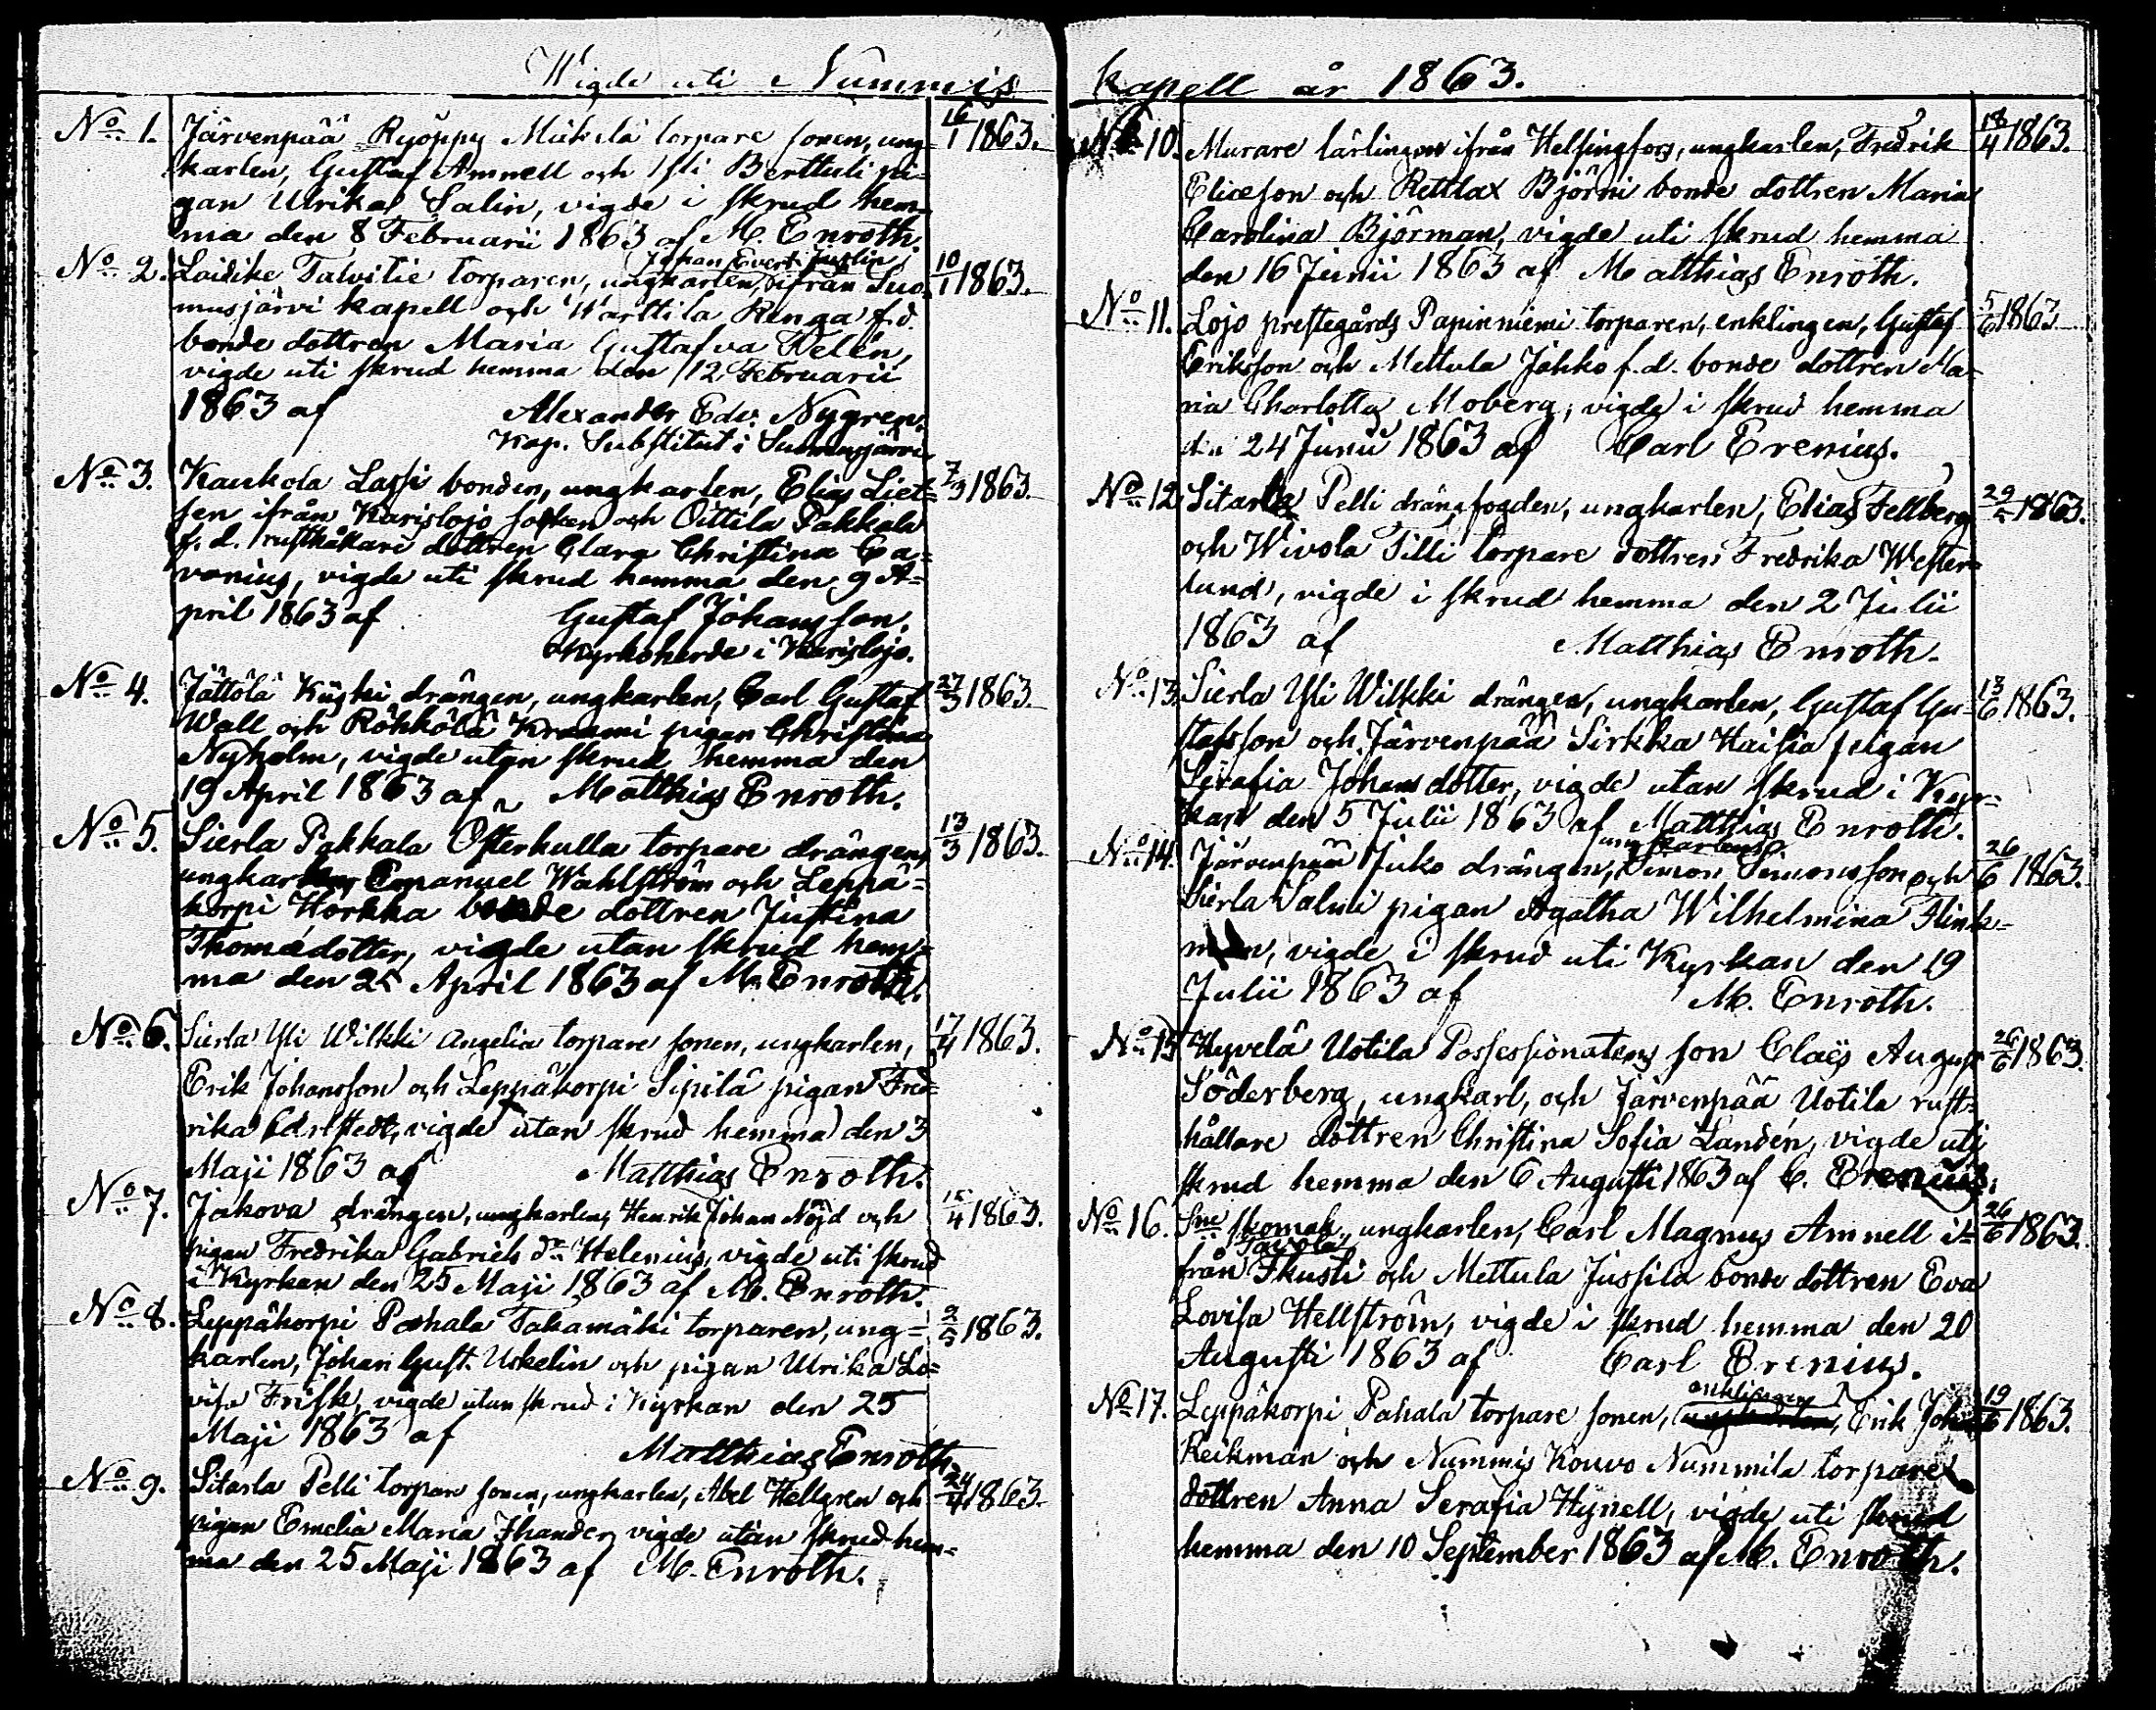 Wigde uti Nummis kapell år 1863.
No 1. Järvenpää Ryöppy Mickelä torpare sonen, ung- 16/1 1863.
karlen, Gustaf Amnell och Isti Berttuli pi-
gan Ulrika Salin, vigde i skrud hem-
ma den 8 Februarii 1863 af M. Enroth.
Johan Evert Juslin
No 2. Laidike Talvitie torparen, ungkarlen, ifrån Suo- 10/1 1863.
musjärvi kapell och Warttila Renga f.d.
bonde dottren Maria Gustafva Welén,
vigde uti skrud hemma den 12 Februarii
1863 af Alexander Edv. Nygren.
Kap. Substitut i Suomusjärvi
No 3. Kaukola Lassi bonden, ungkarlen, Elias Liet- 7/3 1863.
sen ifrån Karislojo socken och Oittila Pakkala
f. d. rusthållare dottren Clara Christina Ca-
vonius, vigde uti skrud hemma den 9 A-
pril 1863 af Gustaf Johansson.
Kyrkoherde i Karislojo.
No 4. Jättölä Kyski drängen, ungkarlen, Carl Gustaf 27/3 1863.
Wall och Röhkölä Kraami pigan Christina
Nyholm, vigde utan skrud hemma den
19 April 1863 af Matthias Enroth.
No 5. Sierla Pakkala Österkulla torpare drängen, 13/3 1863.
ungkarlen Emanuel Wahlström och Leppä-
korpi Horkka bonde dottren Justina
Thomædotter, vigde utan skrud hem-
ma den 25 April 1863 af M. Enroth.
No 6. Sierla Yli Wilkki Angelia torpare sonen, ungkarlen, 17/4 1863.
Erik Johansson och Leppäkorpi Sipilä pigan Fred-
rika Edrstedt, vigde utan skrud hemma den 3
Maji 1863 af Matthias Enroth.
No 7. Jakova drängen, ungkarlen, Henrik Johan Nöjd och 15/4 1863.
pigan Fredrika Gabriels dr Helenius, vigde uti skrud
i Kyrkan den 25 Maji 1863 af M. Enroth.
No 8. Leppäkorpi Pahala Takamäki torparen, ung- 2/5 1863.
karlen, Johan Gust. Uskelin och pigan Ulrika Lo-
visa Frisk, vigde utan skrud i Kyrkan den 25
Maji 1863 af
Matthias Enroth.
No 9. Sitarla Pelli torpare sonen, ungkarlen, Abel Hellgren och 24/4 1863.
pigan Emelia Maria Ihander, vigde utan skrud hem-
ma den 25 Maji 1863 af M. Enroth.
No 10. Murare lärlingen ifrån Helsingfors, ungkarlen, Fredrik 18/4 1863.
Eliæson och Rettlax Björni bonde dottren Maria
Carolina Björman, vigde uti skrud hemma
den 16 Junii 1863 af Matthias Enroth.
No 11. Lojo prestegårds Papinniemi torparen, enklingen, Gustaf 5/6 1863.
Eriksson och Mettula Jakko f. d. bonde dottren Ma-
ria Charlotta Moberg, vigde i skrud hemma
den 24 Junii 1863 af Carl Erenius.
No 12. Sitarla Pelli drängfogden, ungkarlen, Elias Fellberg 29/5 1863.
och Wivola Tilli torpare dottren Fredrika Wester-
lund, vigde i skrud hemma den 2 Julii
1863 af Matthias Enroth.
No 13. Sierla Yli Wilkki drängen, ungkarlen, Gustaf Gu- 13/6 1863.
stafsson och Järvenpää Sirkka Haisia pigan
Serafia Johans dotter, vigde utan skrud i Kyr-
kan den 5 Julii 1863 af Matthias Enroth.
ungkarlen
No 14. Järvenpää Juko drängen, Simon Simonsson och 26/6 1863.
Sierla Salmi pigan Agatha Wilhelmina Flink-
man, vigde i skrud uti Kyrkan den 19
Julii 1863 af M. Enroth.
No 15 Hyvelä Uotila Possessionatens son Claës August 26/6 1863.
Söderberg, ungkarl, och Järvenpää Uotila rust-
hållare dottren Christina Sofia Landén, vigde uti
skrud hemma den 6 Augusti 1863 af C. Erenius.
No 16. Sne skomak., ungkarlen, Carl Magnus Amnell i- 26/6 1863.
Tavola
från Ikusti och Mettula Jussila bonde dottren Eva
Lovisa Hellström, vigde i skrud hemma den 20
Augusti 1863 af Carl Erenius.
enklingen
No 17. Leppäkorpi Pahala torpare sonen, ungkarlen, Erik Joh. 19/6 1863.
Reikman och Nummis Kouvo Nummila torpare
dottren Anna Serafia Hynell, vigde uti skrud
hemma den 10 September 1863 af M. Enroth.